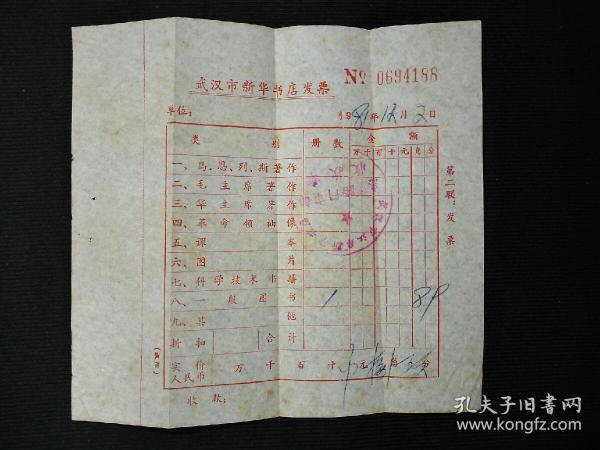 武汉市新华书店发票
№ 0694188
单位：
1981年12月2日
类别 册数 金额
万 千 百 十 元 角 分
一、马、恩、列、斯著作
二、毛主席著作
三、华主席著作
四、革命领袖像
五、课本
六、图片
七、科学技术书籍
八、一般图书 1 89
九、其他
折扣 合计
实价
人民币 万 千 百 十 元 角 分
收款：
第二联：发票
孔夫子旧书网
www.kongfz.com